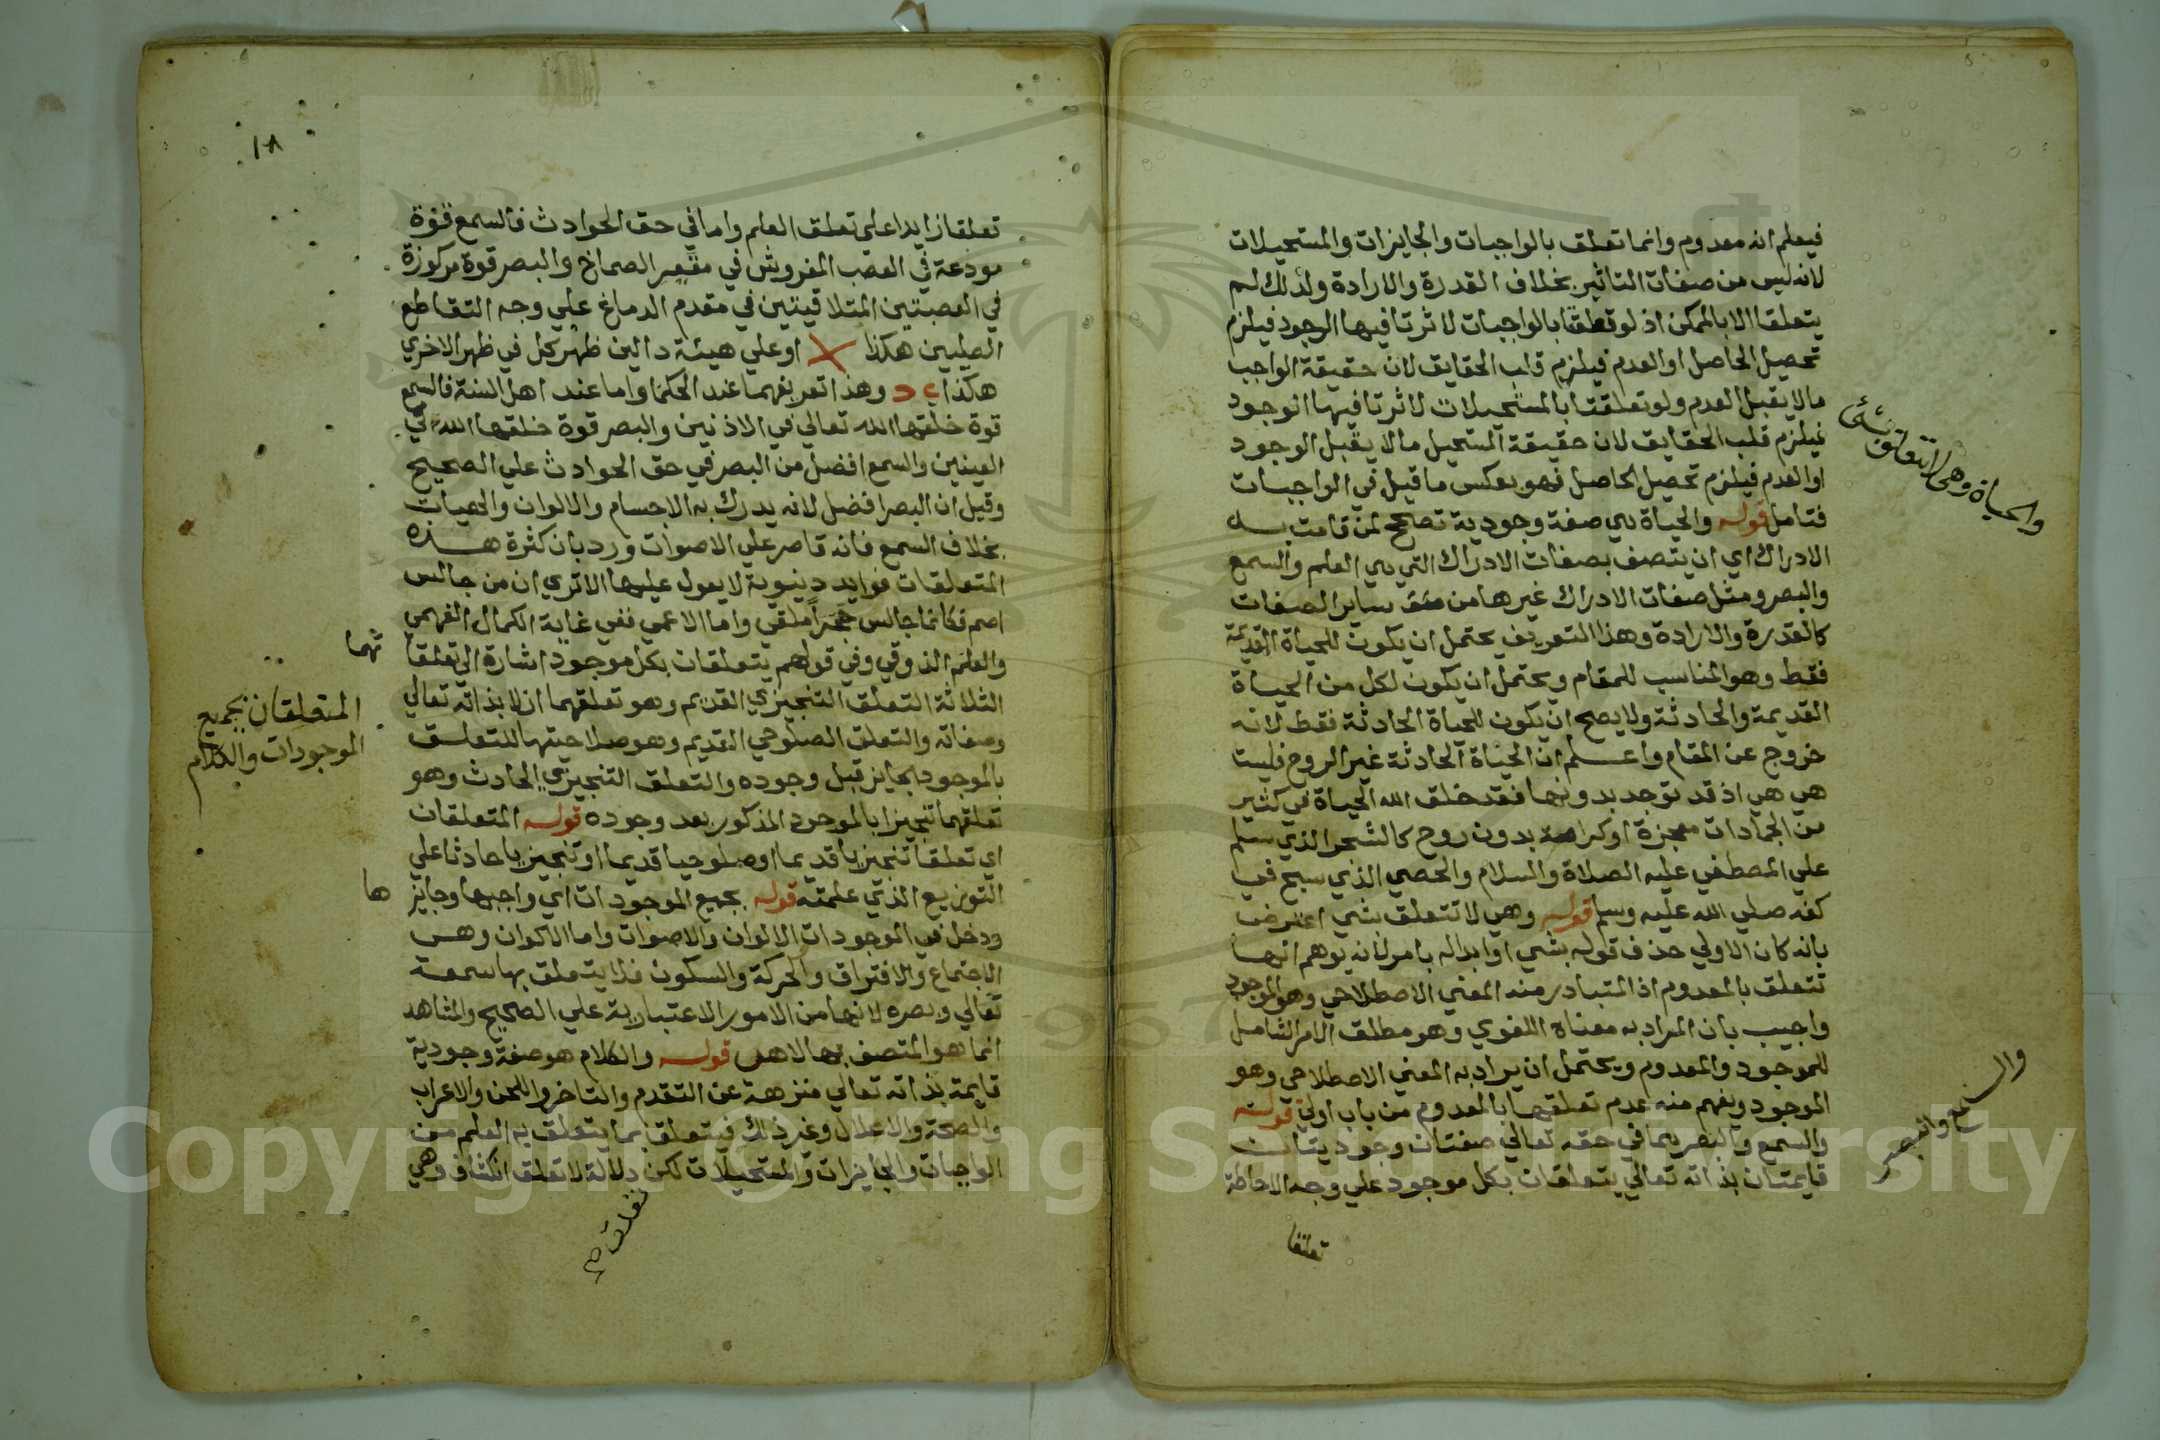 فيعلم انه معدوم وانما تعلق بالواجبات والجايزات والمستحيلات
لانه ليس من صفات التاثير بخلاف القدرة والارادة ولذلك لم
يتعلقا الا بالممكن اذ لو تعلقتا بالواجبات لاثرتا فيها الوجود فيلزم
تحصيل الحاصل او العدم فيلزم قلب الحقايق لان حقيقة الواجب
مالا يقبل العدم ولو تعلقتا بالمستحيلات لاثرتا فيها الوجود
فيلزم قلب الحقايق لان حقيقة المستحيل مالا يقبل الوجود
او العدم فيلزم تحصيل الحاصل فهو بعكس ما قيل في الواجبات
فتامل قوله والحياة هي صفة وجودية تصحح لمن قامت به
الادراك اي ان يتصف بصفات الادراك التي هي العلم والسمع
والبصر ومثل صفات الادراك غيرها من ساير الصفات
كالقدرة والارادة وهذا التعريف يحتمل ان يكون للحياة القديمة
فقط وهو المناسب للمقام ويحتمل ان يكون لكل من الحياة
القديمة والحادثة ولا يصح ان يكون للحياة الحادثة فقط لانه
خروج عن المقام واعلم ان الحياة الحادثة غير الروح فليست
هي هي اذ قد توجد بدونها فقد خلق الله الحياة في كثير
من الجمادات معجزة او كرامة بدون روح كالشجر الذي سلم
علي المصطفي عليه الصلاة والسلام والحصي الذي سبح في
كفه صلي الله عليه وسلم قوله وهي لا تتعلق بشي اعترض
بانه كان الاولي حذف قوله بشي او ابداله بامر لانه يوهم انها
تتعلق بالمعدوم اذ المتبادر منه المعني الاصطلاحي وهو الموجود
واجيب بان المراد به معناه اللغوي وهو مطلق الامر الشامل
للموجود والمعدوم ويحتمل ان يراد به المعني الاصطلاحي وهو
الموجود ويفهم منه عدم تعلقها بالمعدوم من باب اولي قوله
والسمع والبصر هما في حقه تعالي صفتان وجوديتان
قايمتان بذاته تعالي يتعلقان بكل موجود علي وجه الاحاطة
تعلقا
والحياة وهي لا تتعلق بشئ
والسمع والبصر
١٨
تعلقا زايدا علي تعلق العلم واما في حق الحوادث فالسمع قوة
مودعة في العصب المفروش في مقعر الصماخ والبصر قوة مركوزة
في العصبتين المتلاقيتين في مقدم الدماغ علي وجه التقاطع
الصليبين هكذا او علي هيئة دالين ظهر كل في ظهر الاخري
هكذا وهذا تعريفهما عند الحكما واما عند اهل السنة فالسمع
قوة خلقها الله تعالي في الاذنين والبصر قوة خلقها الله في
العينين والسمع افضل من البصر في حق الحوادث علي الصحيح
وقيل ان البصر افضل لانه يدرك به الاجسام والالوان والهيات
بخلاف السمع فانه قاصر علي الاصوات ورد بان كثرة هذه
المتعلقات فوايد دينوية لا يعول عليها الاتري ان من جالس
اصم فكانما جالس حجرا ملقي واما الاعمي ففي غاية الكمال الفهمي
والعلم الذوقي وفي قولهم يتعلقان بكل موجود اشارة الي تعلقا
تهما
الثلاثة التعلق التنجيزي القديم وهو تعلقهما ازلا بذاته تعالي
وصفاته والتعلق الصلوحي القديم وهو صلاحيتها للتعلق
بالموجود الجايز قبل وجوده والتعلق التنجيزي الحادث وهو
تعلقهما تنجيزا بالموجود المذكور بعد وجوده قوله المتعلقان
اي تعلقا تنجيزيا قديما او صلوحيا قديما او تنجيزيا حادثا علي
التوزيع الذي علمته قوله بجميع الموجودات اي واجبها وجايز
ها
ودخل في الموجودات الالوان والاصوات واما الاكوان وهي
الاجتماع والافتراق والحركة والسكون فلا يتعلق بها سمعه
تعالي وبصره لانها من الامور الاعتبارية علي الصحيح والمشاهد
انما هو المتصف بها لا هي قوله والكلام هو صفة وجودية
قايمة بذاته تعالي منزهة عن التقدم والتاخر واللحن والاعراب
والصحة والاعلال وغير ذلك فيتعلق بما يتعلق به العلم من
الواجبات والجايزات والمستحيلات لكن دلالة لا تعلق انكشاف وهي
المتعلقان بجميع
الموجودات والكلام